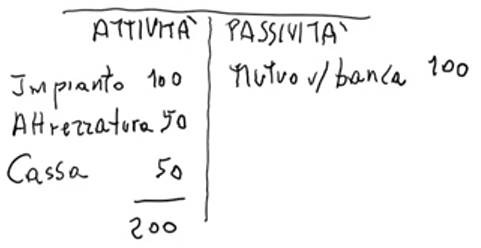 ATTIVITÀ PASSIVITÀ
Impianto 100 Mutuo v/banca 100
Attrezzatura 50
Cassa 50
200